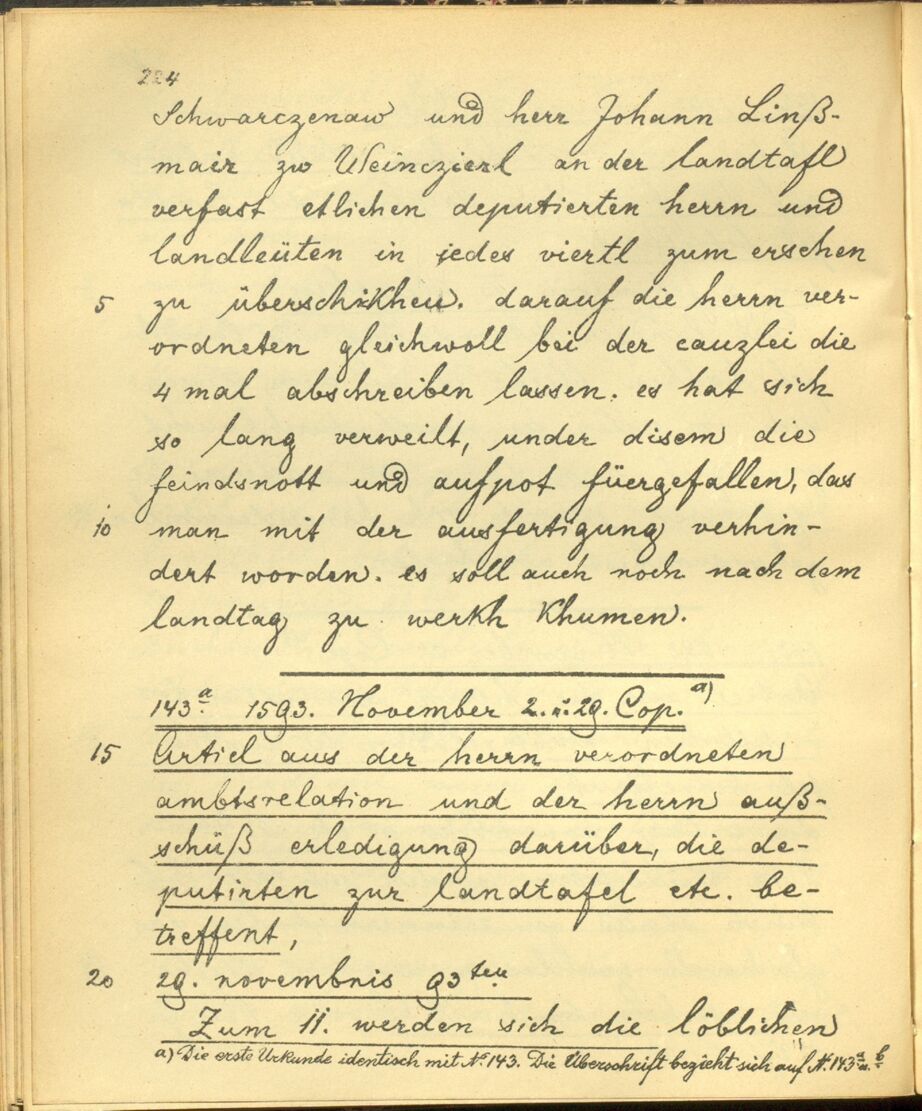 224
Schwarczenaw und herr Johann Linß-
mair zw Weinczierl an der landtafl
verfast etlichen deputierten herrn und
landleüten in jedes viertl zum ersehen
5 zu überschikhen. darauf die herrn ver-
ordneten gleichwoll bei der canzlei die
4 mal abschreiben lassen. es hat sich
so lang verweilt, under disem die
feindsnott und aufpot füergefallen, das
10 man mit der ausfertigung verhin-
dert worden. es soll auch noch nach dem
landtag zu werkh khumen.
143a. 1593. November 2. u. 29. Cop. a)
15 Articl aus der herrn verordneten
ambtsrelation und der herrn auß-
schüß erledigung darüber, die de-
putirten zur landtafel etc. be-
treffent,
20 29. novembris 93ten
Zum 11. werden sich die löblichen
a) Die erste Urkunde identisch mit No. 143. Die Überschrift bezieht sich auf N. 143a u. b